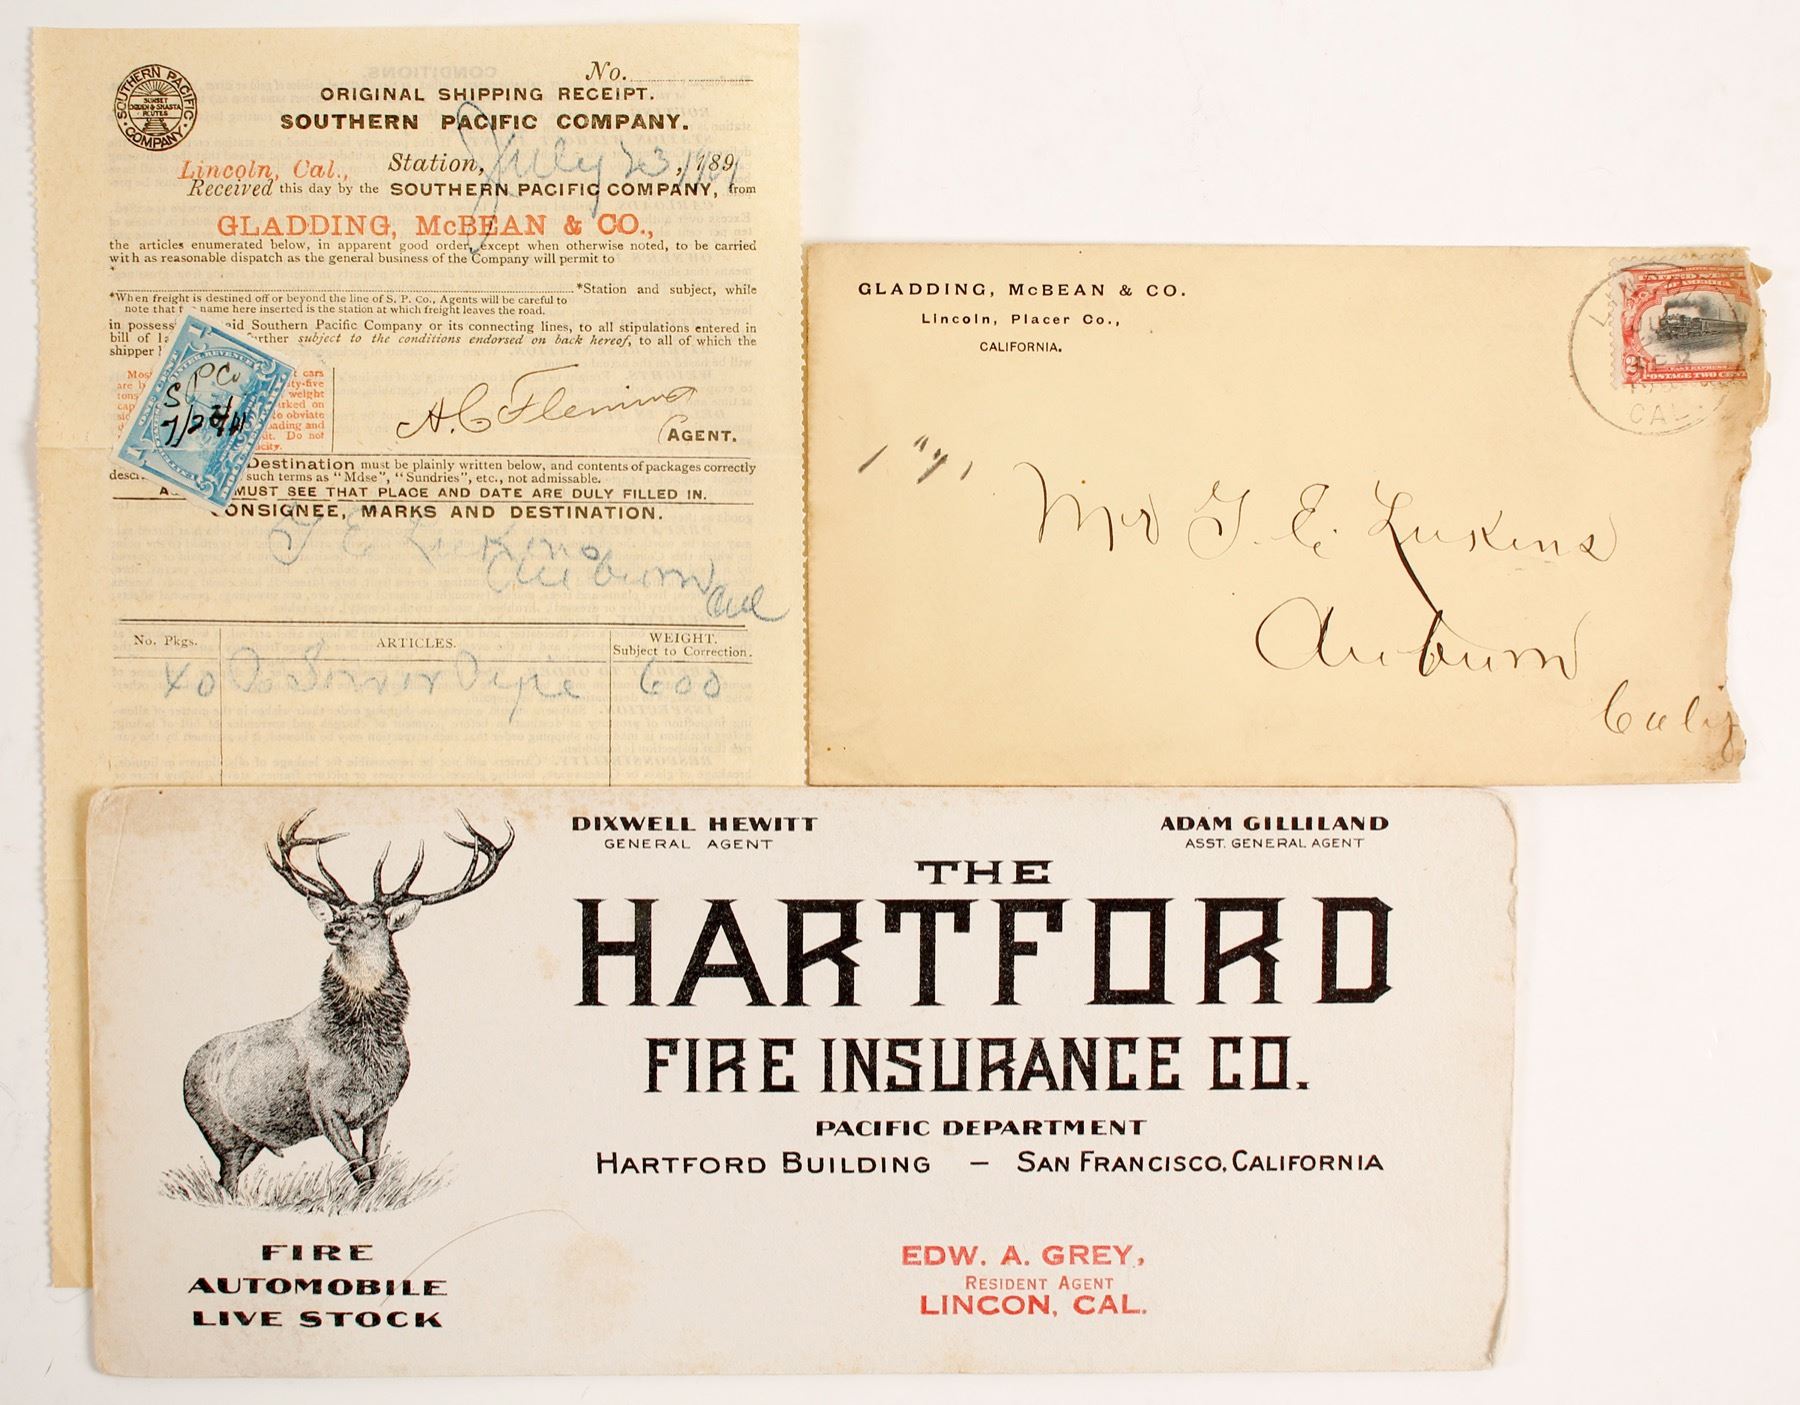 SOUTHERN PACIFIC COMPANY
SUNSET
OGDEN & SHASTA
ROUTES
No.
ORIGINAL SHIPPING RECEIPT.
SOUTHERN PACIFIC COMPANY.
Lincoln, Cal., Station, July 23, 189
Received this day by the SOUTHERN PACIFIC COMPANY, from
GLADDING, McBEAN & CO.,
the articles enumerated below, in apparent good order, except when otherwise noted, to be carried
with as reasonable dispatch as the general business of the Company will permit to
*
*Station and subject, while
*When freight is destined off or beyond the line of S. P. Co., Agents will be careful to
note that name here inserted is the station at which freight leaves the road.
in possess aid Southern Pacific Company or its connecting lines, to all stipulations entered in
bill of la urther subject to the conditions endorsed on back hereof, to all of the which the
shipper
Mos cars
are ty-five
tons weight
cap rked on
to obviate
ading and
it. Do not
city.
INTER. REVENUE
ONE CENT
S P Co
A. C Fleming
AGENT.
Destination must be plainly written below, and contents of packages correctly
descr such terms as "Mdse", "Sundries", etc., not admissable.
MUST SEE THAT PLACE AND DATE ARE DULY FILLED IN.
CONSIGNEE, MARKS AND DESTINATION.
T E Lukens
Auburn
Cal
No. Pkgs. ARTICLES. WEIGHT.
Subject to Correction.
40 Sewer Pipe 600
GLADDING, McBEAN & CO.
Lincoln, Placer Co.,
CALIFORNIA.
UNITED STATES
OF AMERICA
2
FAST EXPRESS
POSTAGE TWO CENT
CAL.
Mr T. E. Lukens
Auburn
Calif
DIXWELL HEWITT
GENERAL AGENT
ADAM GILLILAND
ASST. GENERAL AGENT
THE
HARTFORD
FIRE INSURANCE CO.
PACIFIC DEPARTMENT
HARTFORD BUILDING – SAN FRANCISCO, CALIFORNIA
FIRE
AUTOMOBILE
LIVE STOCK
EDW. A. GREY,
RESIDENT AGENT
LINCON, CAL.